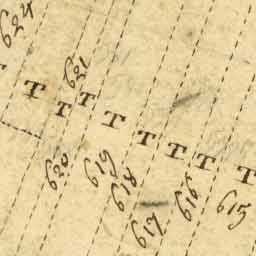 624
621
T T T T T T T T
620 619 618 617 616 615